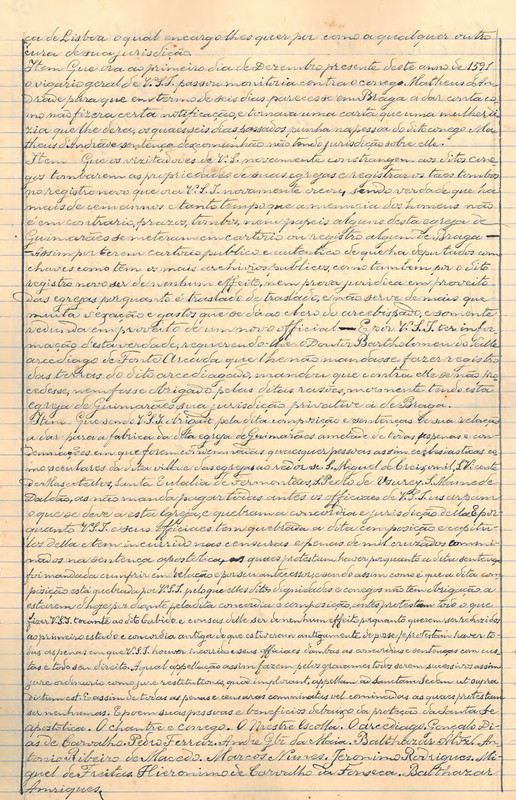 ca de Lisboa o qual encargo lhes quer por como a qualquer outro
cura de sua jurisdicção.
Item Que ora ao primeiro dia de Dezembro presente deste anno de 1591
o vigario geral de V.S.I. passou monitoria contra o conego Matheus d'An-
drade para que em termo de seis dias parecesse em Braga a dar conta co-
mo não fizera certa notificação, e tornara uma carta que uma mulher di-
zia que lhe dera, os quaes seis dias passados, punha na pessoa do dito conego Ma-
theus d'Andrade sentença d'escomunhão não tendo jurisdicção sobre elle.
Item Que os visitadores de V.S.I. novamente constrangem aos ditos cone-
gos tombarem as propriedades de suas egrejas e registrarem os taes tombos
no registro novo que ora V.S.I. novamente creou, sendo verdade que ha
mais de cem annos e tanto tempo que a memoria dos homens não
é em contrario, prazos, tombos, nem papeis alguns desta egreja de
Guimarães se meteram em cartorio ou registro algum de Braga
Assim por terem cartorio publico e autentico de que ha deputados com
chaves como tem os mais archivios publicos, como tambem por o dito
registro novo ser de nenhum effeito, nem prova juridica em proveito
das egrejas porquanto é traslado de traslado, e não serve de mais que
muita vexação e gastos que se dá ao clero do arcebispado, e somente
redunda em proveito de um novo official — E por V.S.I. ter infor-
mação desta verdade, requerendo-lhe o Doutor Bartholomeu do Valle
arcediago de Fonte Arcada que lhe não mandasse fazer registro
das terras do dito arcediagado, mandou que contra elle se não pro-
cedesse, nem fosse obrigado pelas ditas rasões, mormente tendo esta
egreja de Guimarães sua jurisdicção privativa á de Braga.
Item. Que sendo V.S.I. obrigado pela dita composição e sentenças de sua relação
a dar para a fabrica da dita egreja de Guimarães ametade de todas as penas e con-
demnações em que forem condemnadas quaesquer pessoas assim ecclesiasticas co-
mo seculares da dita villa e das egrejas ao redor se. S. Miguel de Creixomil, S. Vicente
de Mascotellos, Santa Eulalia de Fermontões, S. Pedro de Azurey, S. Mamede
Daldão, as não manda pagar todas antes os officiaes de V.S.I. usurpam
o que se deve a esta egreja, e quebram a concordia e jurisdicção della E por
quanto V.S.I. e seus officiaes tem quebrada a dita composição e capitu-
los della e tem incurrido nas censuras e penas de mil cruzados commi-
nados na sentença apostolica, as quaes protestam haver porquanto a dita sentença
foi mandada cumprir em relação e por seu antecessor, e sendo assim como é que a dita com-
posição está quebrada por V.S.I. pelo que elles ditos dignidades e conegos não tem obrigação a
estarem d'hoje por diante pela dita concordia e composição, antes protestam todo o que
fizer V.S.I. tocante ao dito cabido e cousas delle ser de nenhum effeito porquanto querem ser reduzidos
ao primeiro estado e concordia antiga de que estiveram antigamente de posse, e protestam haver to-
das as penas em que V.S.I. houver incorrido e seus officiaes d'ambas as concordias e sentenças com cus-
tas e todo seu direito. A qual appellação assim fazem pelos gravames todos serem successivos assim
jure ordinario como jure restitutionis, quod implorant, appellam ad Sanctam Sedem ut supra
dictum est. E assim de todas as penas e censuras comminatas vel comminadas as quaes protestam
ser nenhumas. E poem suas pessoas e beneficios debaixo da proteção da Santa Sé
apostolica. O chantre o conego. O Mestre Escolla. O arcediago, Gonçalo Di-
as de Carvalho. Pedro Ferraz. André Glz da Maia. Balthazar Alvz. An-
tonio Ribeiro de Macedo. Marcos Nunes. Jeronimo Rodrigues. Mi-
guel de Freitas. Hieronimo de Carvalho da Fonseca. Balthazar
Anriques.